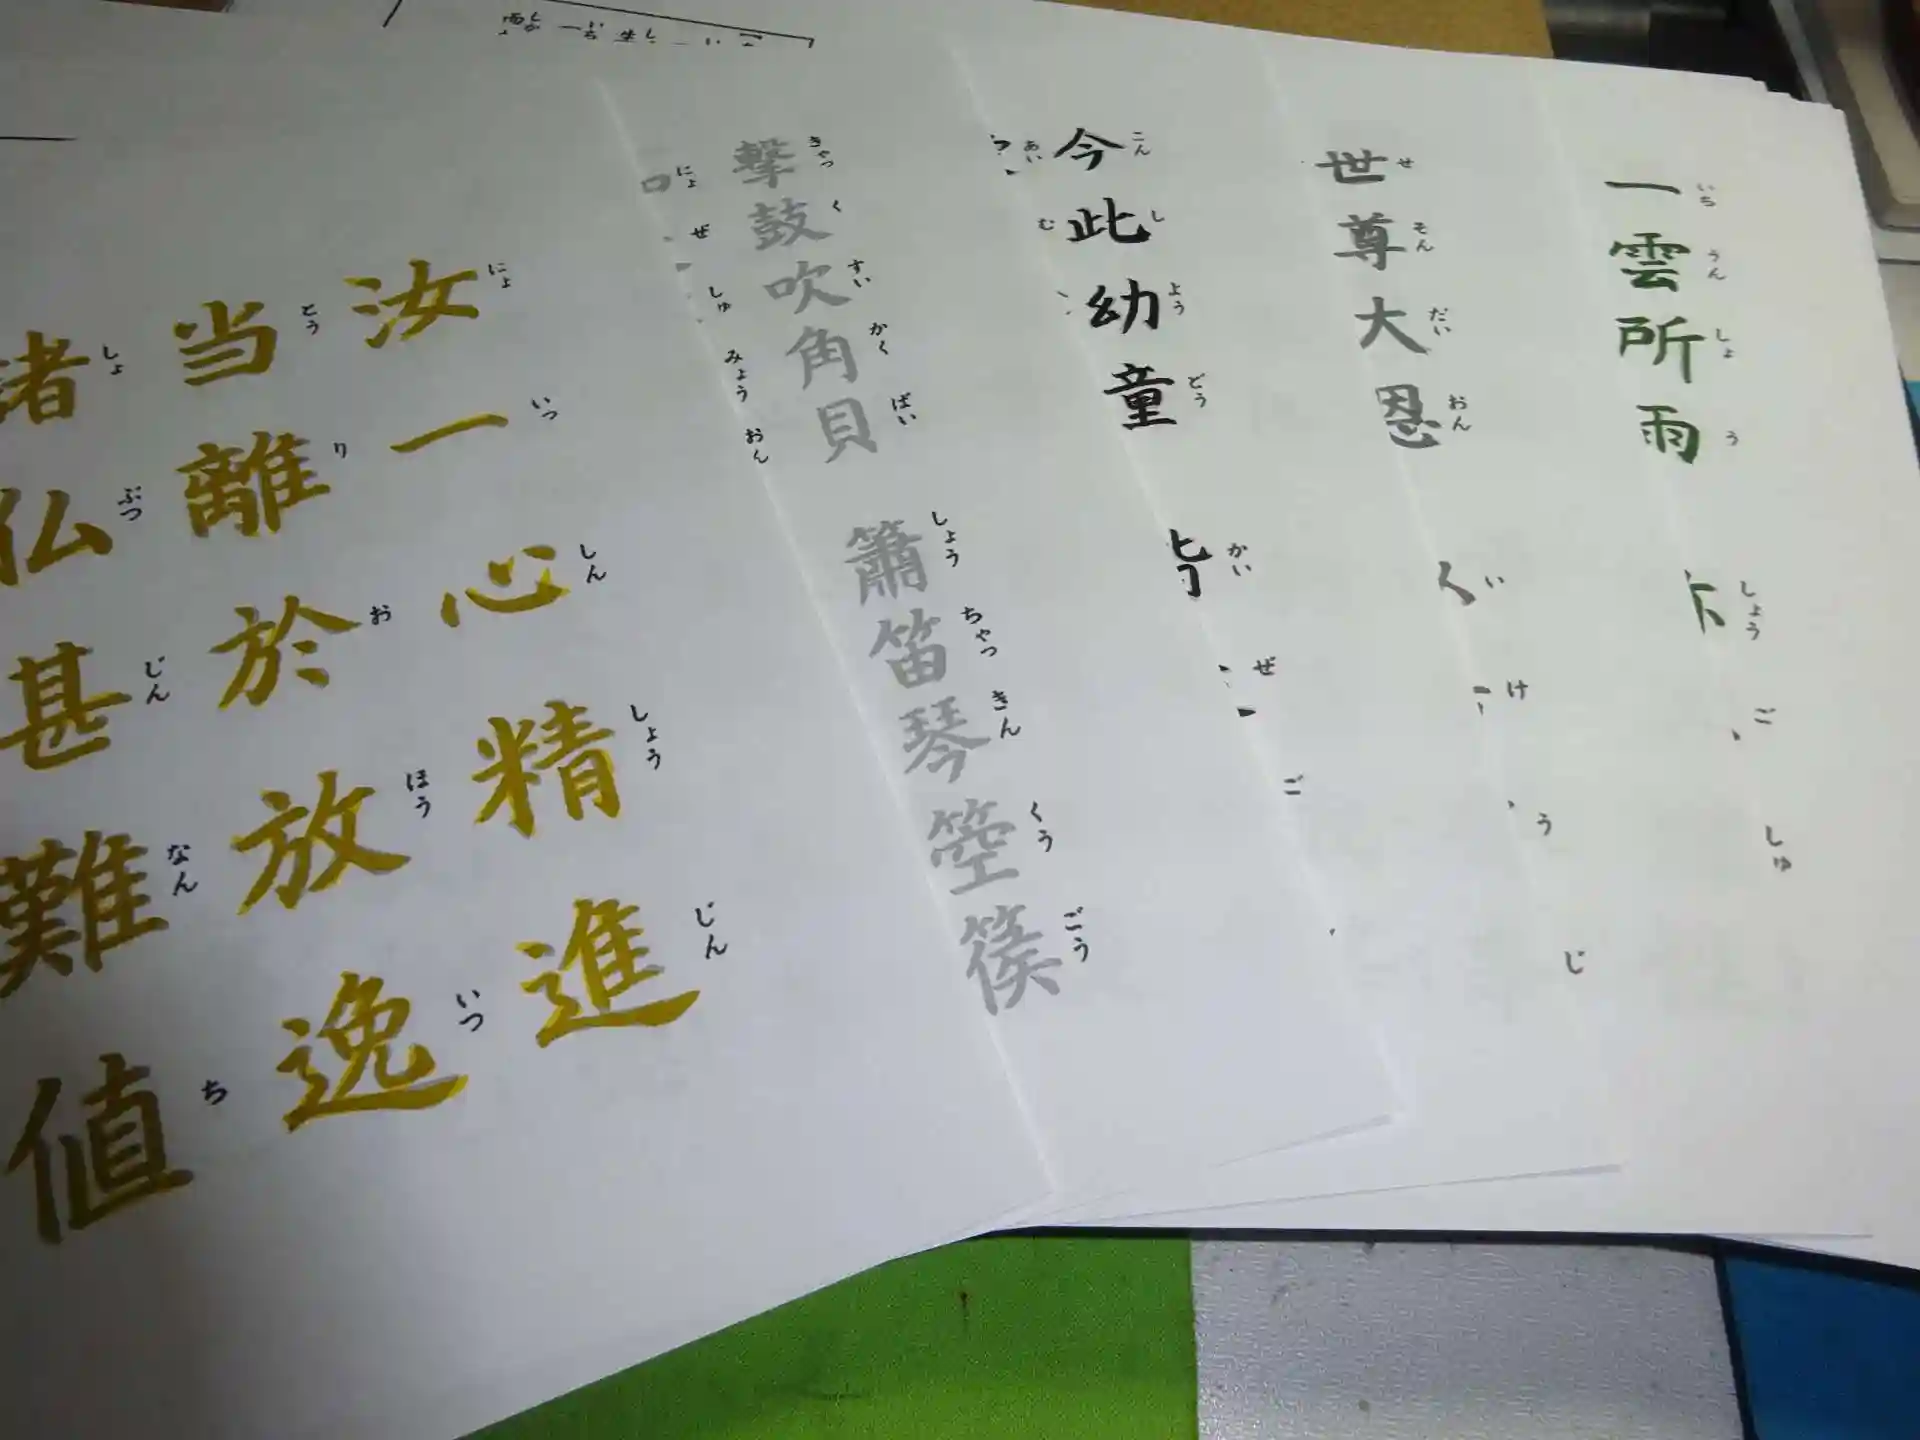 一雲所雨
いちうんしょう
しょうごしゅ
世尊大恩
せそんだいおん
いけうじ
今此幼童
こんしようどう
かいぜご
撃鼓吹角貝
きゃっくすいかくばい
簫笛琴箜篌
しょうちゃっきんくうごう
にょぜしゅみょうおん
汝一心精進
にょいつしんしょうじん
当離於放逸
とうりおほういつ
諸仏甚難値
しょぶつじんなんち